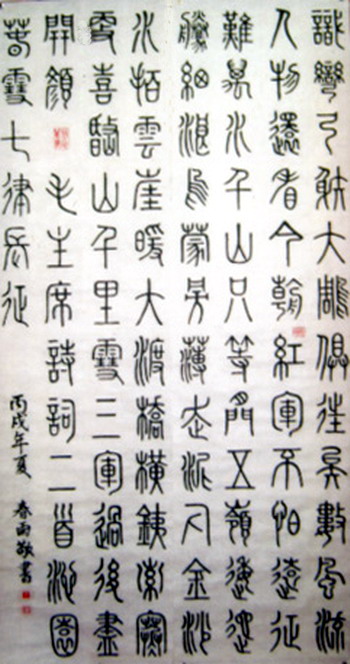 識彎弓射大雕俱往矣數風流
人物還看今朝 紅軍不怕遠征
難萬水千山只等閒五嶺逶迤
騰細浪烏蒙旁薄走泥丸金沙
水拍雲崖暖大渡橋橫鐵索寒
更喜岷山千里雪三軍過後盡
開顏 毛主席詩詞二首沁園
春雪七律長征
丙戌年夏 春雨敬書